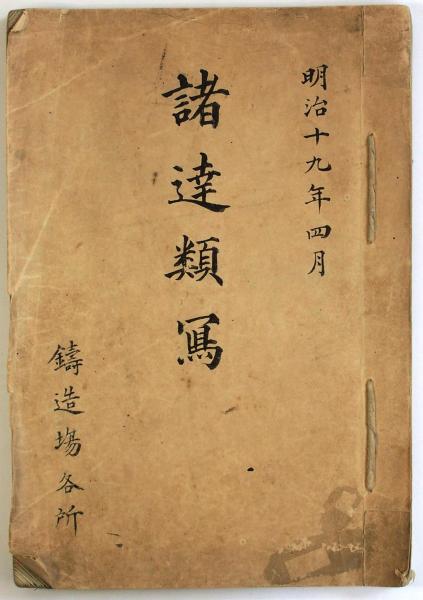 明治十九年四月
諸達類冩
鑄造場各所